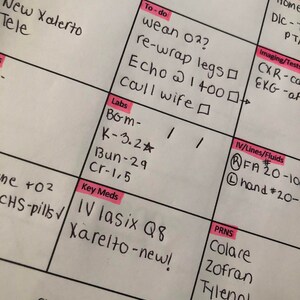 New Xalerto
Tele
To - do
wean O2?
re-wrap legs
Echo @ 1400
call wife
Home
Dlc-
Imaging/Tests
CXR-
EKG-
Labs
BGM-
K-3.2☆
Bun-29
Cr-1.5
/ /
IV/Lines/Fluids
R FA 20-
L hand #20-
+O2
CHS-pills✓
Key Meds
IV lasix Q8
Xarelto-new!
PRNS
Colare
Zofran
Tylenol